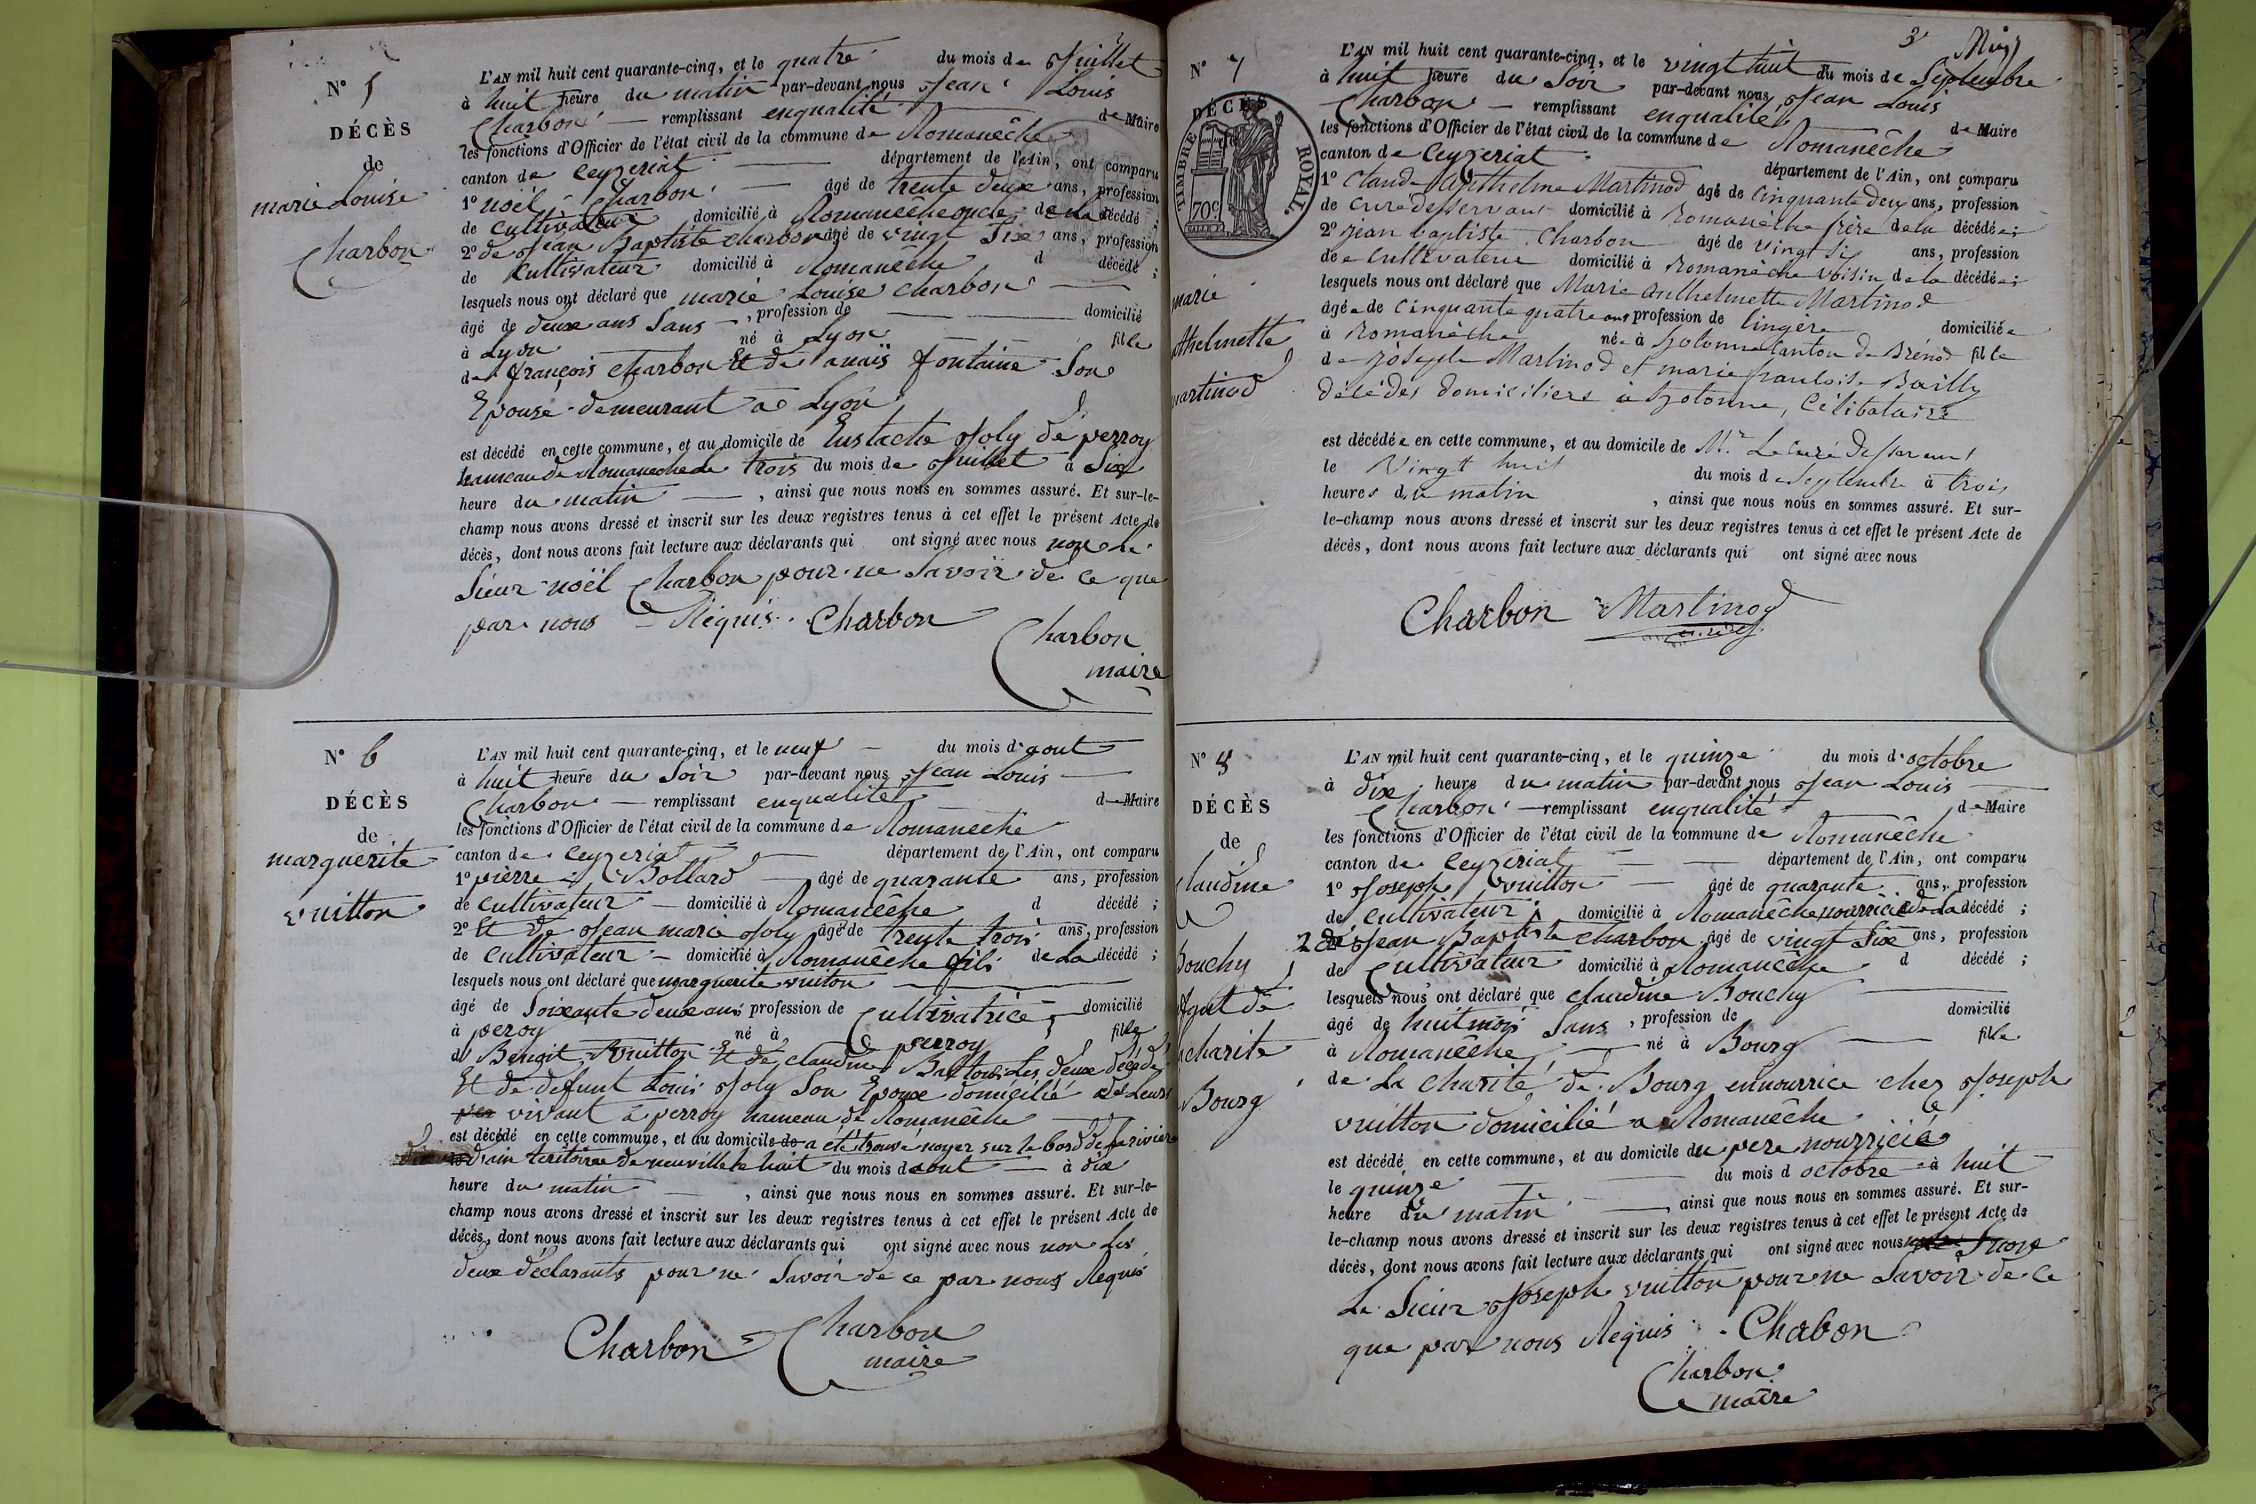 N° 5
DÉCÈS
de
marie Louise
Charbon
L'AN mil huit cent quarante-cinq, et le quatre du mois de Juillet
à huit heure du matin par-devant nous Jean Louis
Charbon remplissant enqualité de Maire
les fonctions d'Officier de l'état civil de la commune de Romanêche
canton de Ceyzeriat département de l'Ain, ont comparu
1° noël Charbon âgé de trente deux ans, profession
de cultivateur domicilié à Romanêche oncle de la décédé ;
2° de Jean Baptiste charbon âgé de vingt Six ans, profession
de Cultivateur domicilié à Romanêche d décédé ;
lesquels nous ont déclaré que marie Louise charbon
âgé de deux ans Sans , profession de domicilié
à Lyon né à Lyon fille
de françois charbon Et de anaïs fontaine Son
Epouse demeurant a Lyon
est décédé en cette commune, et au domicile de Eustache Joly de perroy
hameau de Romaneche le trois du mois de Juillet à Six
heure du matin , ainsi que nous nous en sommes assuré. Et sur-le-
champ nous avons dressé et inscrit sur les deux registres tenus à cet effet le présent Acte de
décès, dont nous avons fait lecture aux déclarants qui ont signé avec nous non le
Sieur noël Charbon pour ne Savoir de ce que
par nous Réquis. Charbon
Charbon
maire
N° 6
DÉCÈS
de
marguerite
vuitton
L'AN mil huit cent quarante-cinq, et le neuf du mois d'aout
à huit heure du Soir par-devant nous Jean Louis
Charbon remplissant enqualité de Maire
les fonctions d'Officier de l'état civil de la commune de Romanêche
canton de Ceyzeriat département de l'Ain, ont comparu
1° pierre Bollard âgé de quarante ans, profession
de cultivateur domicilié à Romanêche d décédé ;
2° Et de Jean marie Joly âgé de trente trois ans, profession
de cultivateur domicilié à Romanêche fils de la décédé ;
lesquels nous ont déclaré que marguerite vuiton
âgé de Soixante deux ans profession de Cultivatrice domicilié
à peroy né à perroy fille
d Benoit Vuitton Et de claudine Les deux décédé
Et de defunt Louis Joly Son Epoux domicilié de Leurs
vivant à perroy hameau de Romanêche
est décédé en cette commune, et au domicile de a été trouvé noyer sur le bord de la rivière
d'ain teritoire de neuville le huit du mois d'aout à dix
heure du matin , ainsi que nous nous en sommes assuré. Et sur-le-
champ nous avons dressé et inscrit sur les deux registres tenus à cet effet le présent Acte de
décès, dont nous avons fait lecture aux déclarants qui ont signé avec nous non Les
deux déclarants pour ne Savoir de ce par nous Requis
Charbon Charbon
maire
3
N° 7
DÉCÈS
de
TIMBRE ROYAL
70c.
marie
anthelmette
martinod
L'AN mil huit cent quarante-cinq, et le vingt huit du mois de Septembre
à huit heure du Soir par-devant nous Jean Louis
Charbon remplissant enqualité de Maire
les fonctions d'Officier de l'état civil de la commune de Romanêche
canton de Ceyzeriat département de l'Ain, ont comparu
1° Claude Anthelme Martinod âgé de cinquante deux ans, profession
de curé desservant domicilié à Romanêche frère de la décédée ;
2° Jean baptiste Charbon âgé de vingt Six ans, profession
de cultivateur domicilié à Romanèche voisin de la décédée ;
lesquels nous ont déclaré que Marie Anthelmette Martinod
âgée de cinquante quatre ans profession de lingère domiciliée
à Romanèche née à hotonne Canton de Brénod fille
de Joseph Martinod et marie francoise Bailly
décédés domiciliers à hotonne, célibataire
est décédée en cette commune, et au domicile de Mr. Le curé desservant
le Vingt huit du mois de Septembre à trois
heures du matin , ainsi que nous nous en sommes assuré. Et sur-
le-champ nous avons dressé et inscrit sur les deux registres tenus à cet effet le présent Acte de
décès, dont nous avons fait lecture aux déclarants qui ont signé avec nous
Charbon Martinod
N° 8
DÉCÈS
de
Claudine
Bouchy
Enfant de
la charité
Bourg
L'AN mil huit cent quarante-cinq, et le quinze du mois d'octobre
à dix heure du matin par-devant nous Jean Louis
Charbon remplissant enqualité de Maire
les fonctions d'Officier de l'état civil de la commune de Romanêche
canton de Ceyzeriat département de l'Ain, ont comparu
1° Joseph Vuitton âgé de quarante ans, profession
de cultivateur domicilié à Romanêche nourricié de La décédé ;
2 de Jean Baptiste Charbon âgé de vingt Six ans, profession
de Cultivateur domicilié à Romanêche d décédé ;
lesquels nous ont déclaré que claudine Bouchy
âgé de huit mois Sans , profession de domicilié
à Romanêche né à Bourg fille
de La charité de Bourg ennourrice chez Joseph
vuitton domicilié a Romanêche
est décédé en cette commune, et au domicile du pere nourricié
le quinze du mois d octobre à huit
heure du matin , ainsi que nous nous en sommes assuré. Et sur-
le-champ nous avons dressé et inscrit sur les deux registres tenus à cet effet le présent Acte de
décès, dont nous avons fait lecture aux déclarants qui ont signé avec nous non
Le Sieur Joseph vuitton pour ne Savoir de ce
que par nous Requis. Chabon
Charbon
maire